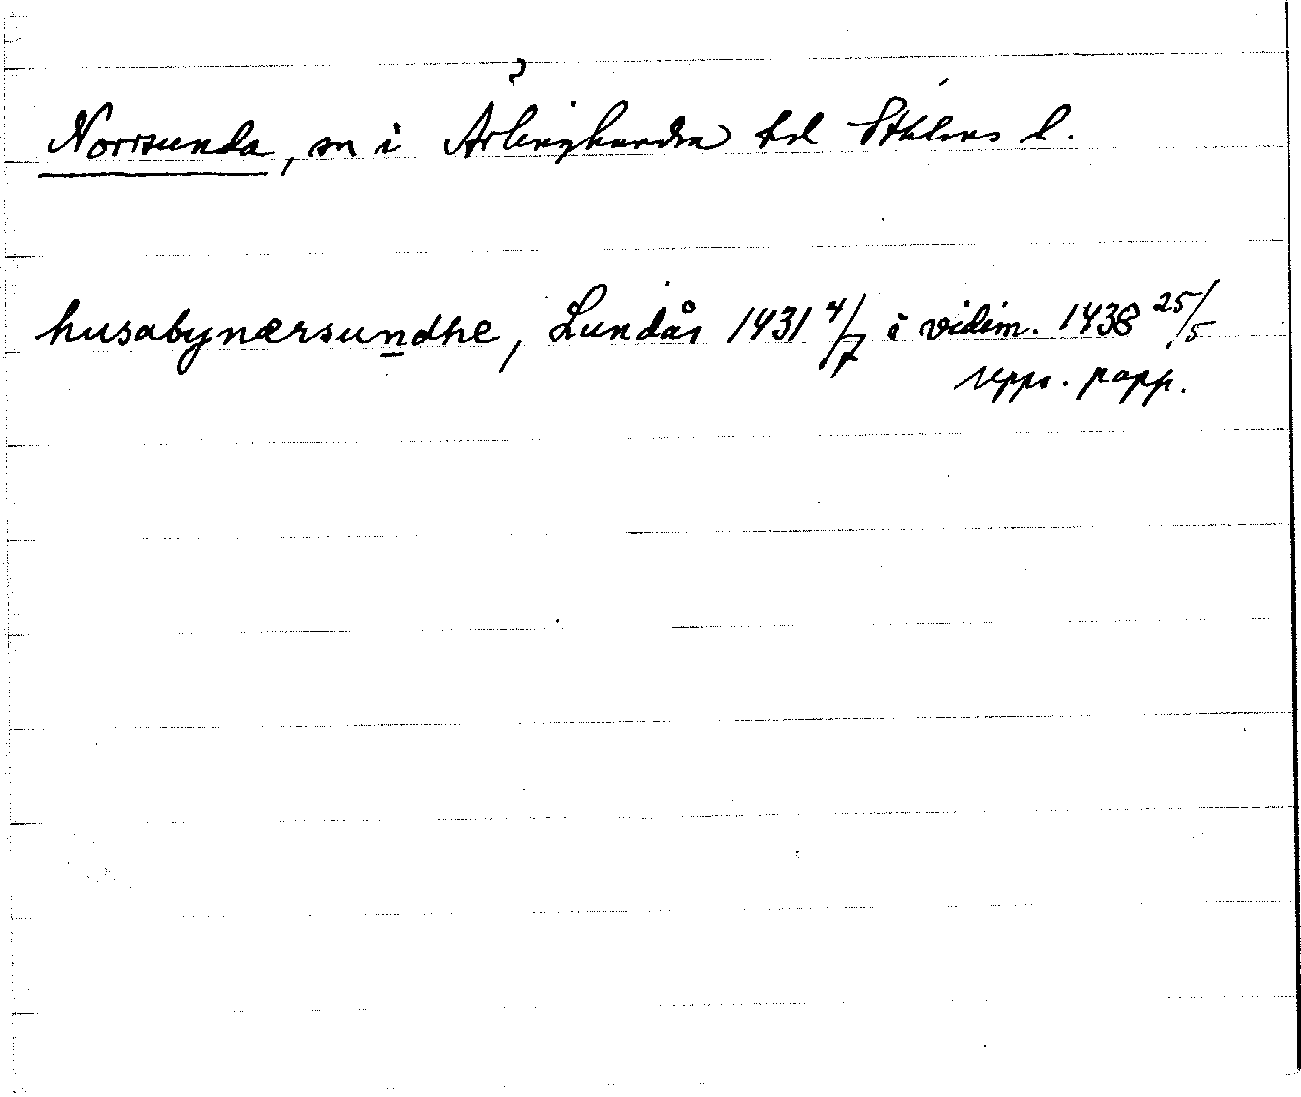 ?
Norrsunda, sn i Ärlinghundra hd Sthlms l.
husabynærsundhe, Lundår 1431 4/7 i vidim. 1438 25/5
papp.